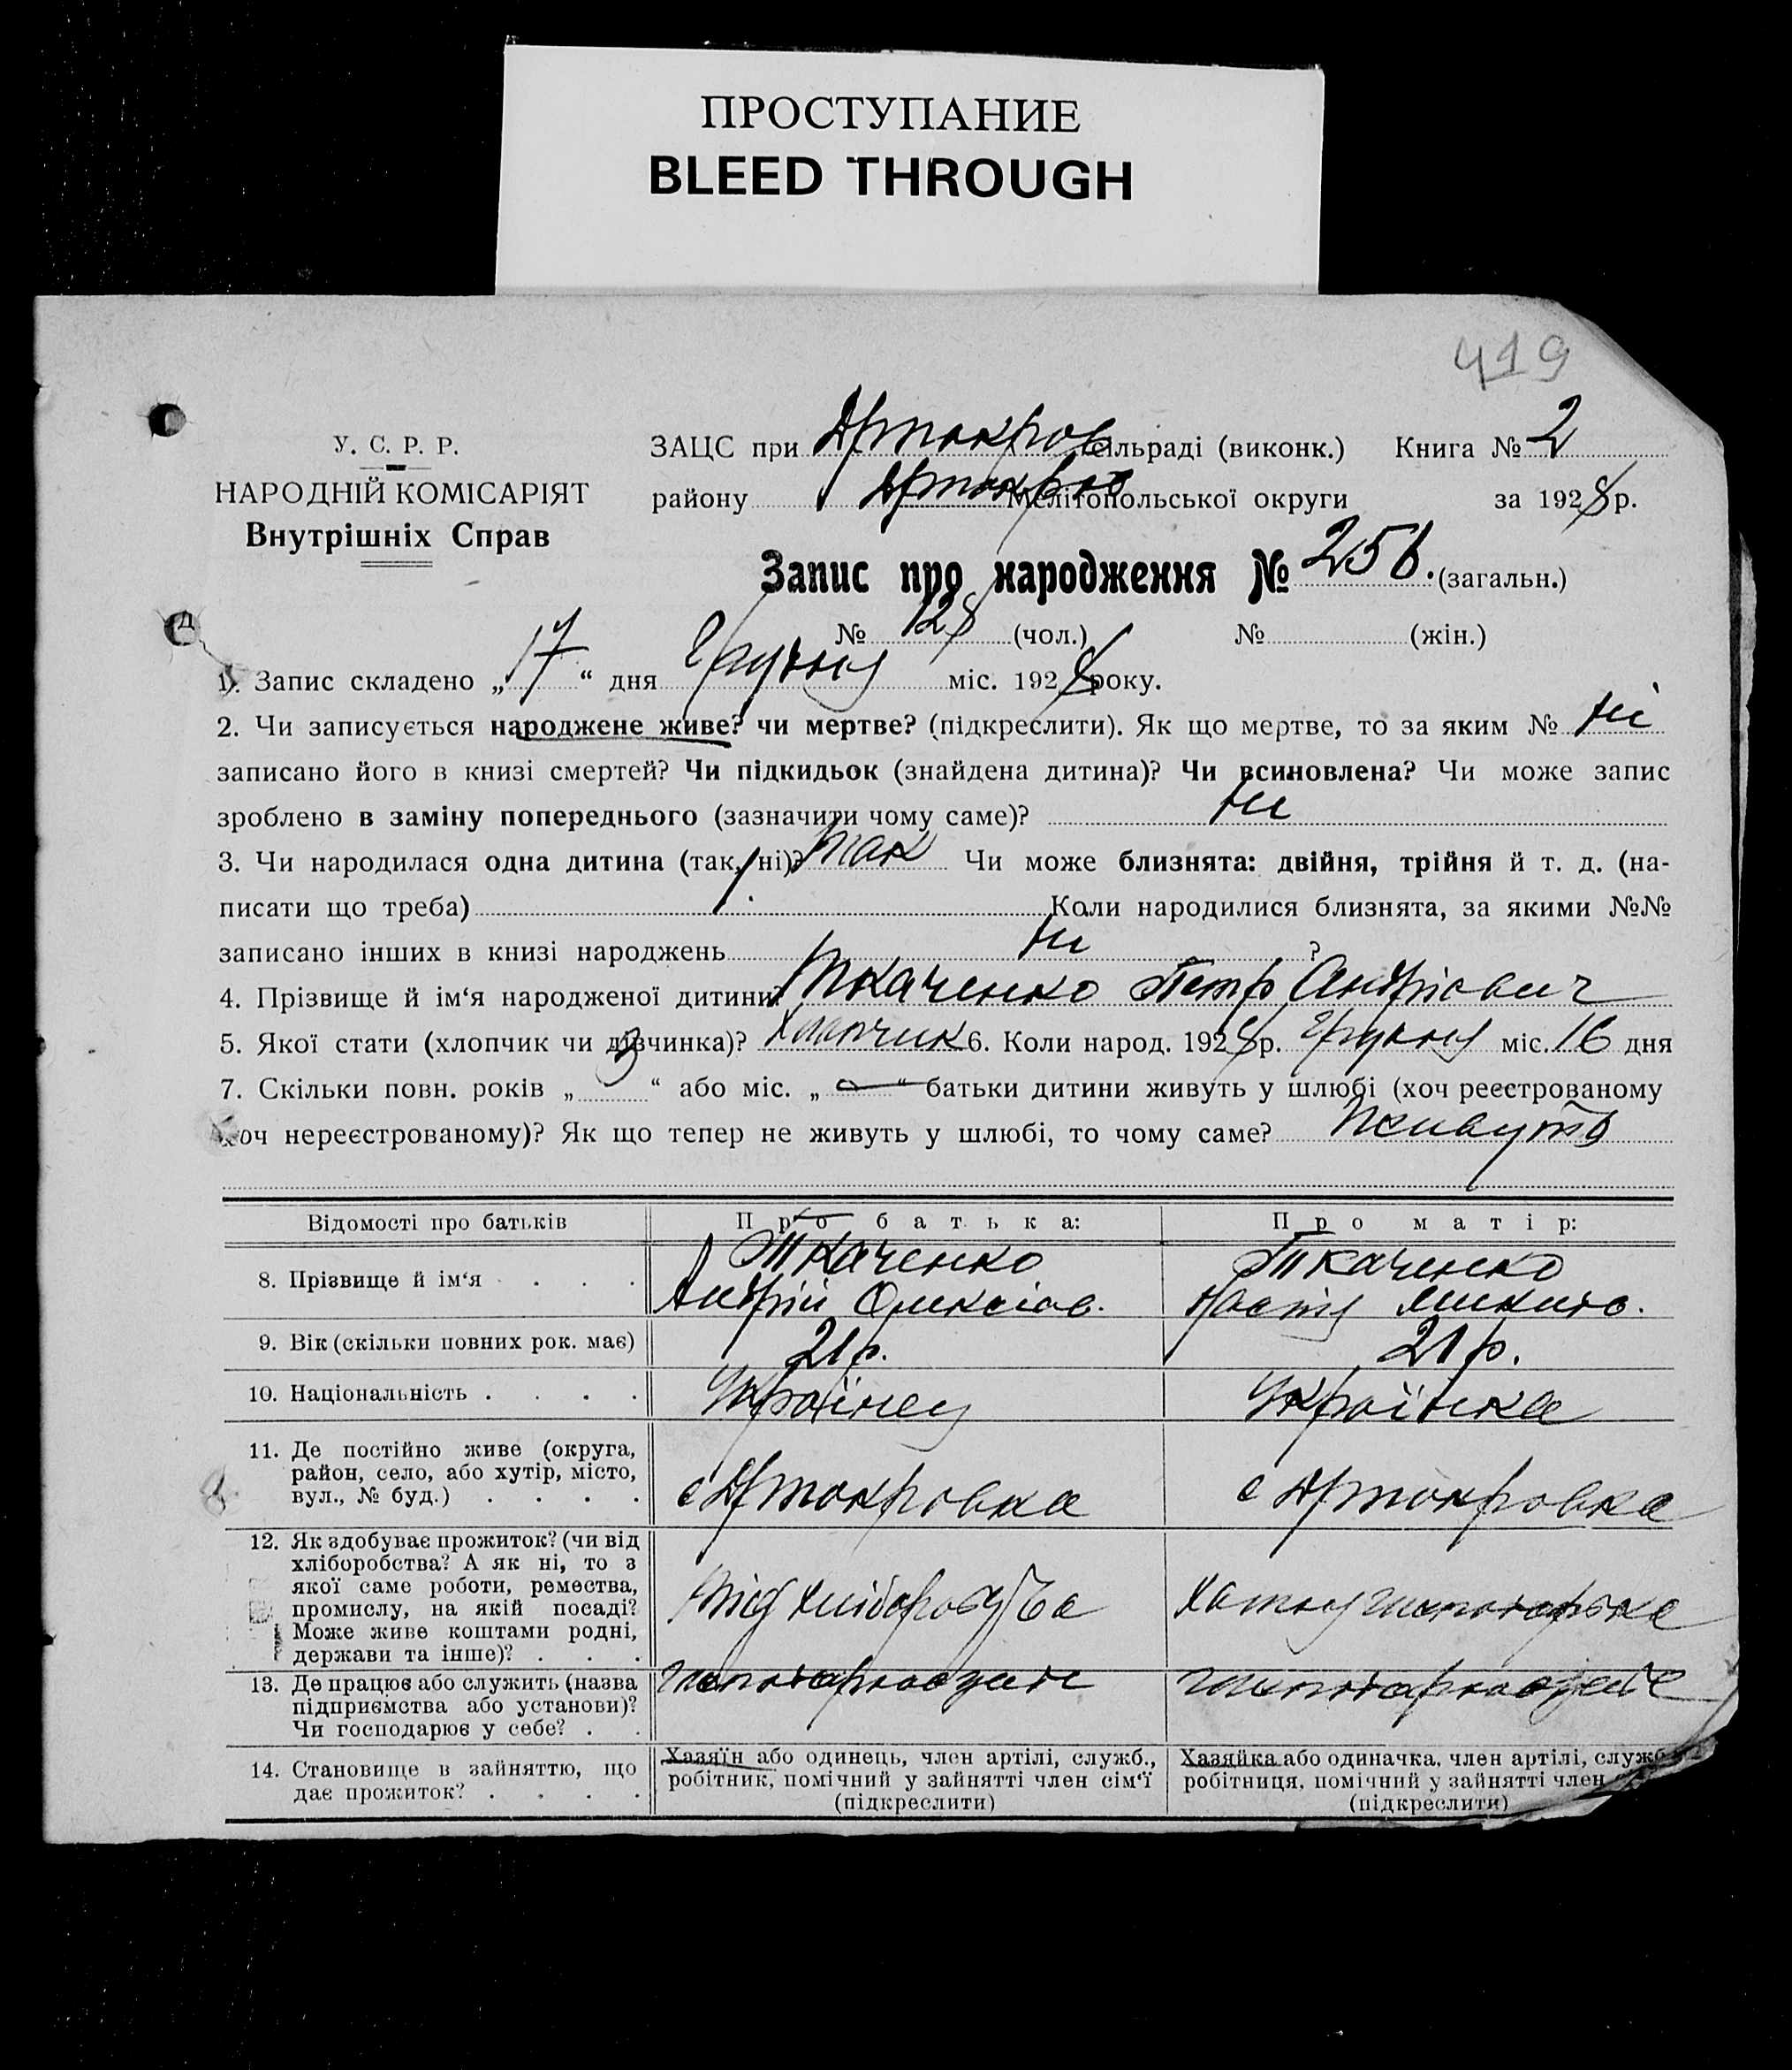 ПРОСТУПАНИЕ
BLEED THROUGH
419
У. С. Р. Р.
НАРОДНІЙ КОМІСАРІЯТ
Внутрішніх Справ
ЗАЦС при сільраді (виконк.) Книга № 2
району Мелітопольської округи за 1928 р.
Запис про народження № 256. (загальн.)
№ 128 (чол.) № (жін.)
1). Запис складено „17“ дня Грудня міс. 1928 року.
2. Чи записується народжене живе? чи мертве? (підкреслити). Як що мертве, то за яким № ні
записано його в книзі смертей? Чи підкидьок (знайдена дитина)? Чи всиновлена? Чи може запис
зроблено в заміну попереднього (зазначити чому саме)? ні
3. Чи народилася одна дитина (так, ні)? так Чи може близнята: двійня, трійня й т. д. (на-
писати що треба) Коли народилися близнята, за якими №№
записано інших в книзі народжень ні ?
4. Прізвище й ім‘я народженої дитини? Ткаченко Петр Андрієвич
5. Якої стати (хлопчик чи дівчинка)? Хлопчик 6. Коли народ. 1928 р. Грудня міс. 16 дня
7. Скільки повн. років „3“ або міс. „ “ батьки дитини живуть у шлюбі (хоч реєстрованому
хоч нереєстрованому)? Як що тепер не живуть у шлюбі, то чому саме? Живуть
Відомості про батьків
Про батька:
Про матір:
8. Прізвище й ім‘я . . . .
Ткаченко
Андрій Олексіов.
Ткаченко
Настя Микито.
9. Вік (скільки повних рок. має)
21 р.
21 р.
10. Національність . . . .
Українец
Українка
11. Де постійно живе (округа,
район, село, або хутір, місто,
вул., № буд.) . . . .
с
с
12. Як здобуває прожиток? (чи від
хліборобства? А як ні, то з
якої саме роботи, ремества,
промислу, на якій посаді?
Може живе коштами родні,
держави та інше)? . . .
13. Де працює або служить (назва
підприємства або установи)?
Чи господарює у себе? . .
14. Становище в зайняттю, що
дає прожиток? . . . .
Хазяїн або одинець, член артілі, служб.,
робітник, помічний у зайнятті член сім‘ї
(підкреслити)
Хазяйка або одиначка, член артілі, служб.
робітниця, помічний у зайнятті член
(підкреслити)